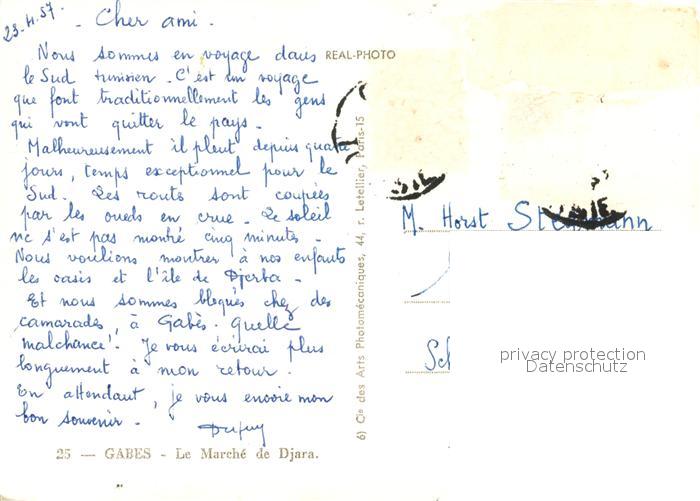 23.4.57.
- Cher ami -
Nous sommes en voyage dans
le Sud tunisien - C'est un voyage
que font traditionnellement les gens
qui vont quitter le pays -
Malheureusement il pleut depuis quatre
jours, temps exceptionnel pour le
Sud. Les routes sont coupées
par les oueds en crue - Le soleil
ne s'est pas montré cinq minutes -
Nous voulions montrer à nos enfants
les oasis et l'île de Djerba -
Et nous sommes bloqués chez des
camarades, à Gabès. Quelle
malchance! Je vous écrirai plus
longuement à mon retour.
En attendant, je vous envoie mon
bon souvenir -
Dupuy
25 — GABES - Le Marché de Djara.
REAL-PHOTO
6) Cie des Arts Photomécaniques, 44, r. Letellier, Paris-15
M. Horst
Sch
privacy protection
Datenschutz